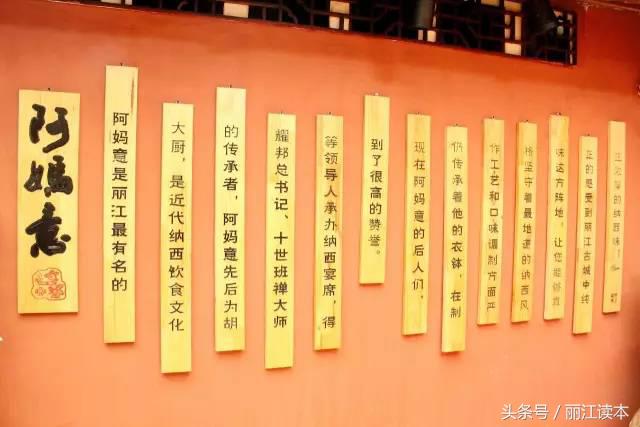 阿妈意
阿妈意是丽江最有名的
大厨，是近代纳西饮食文化
的传承者，阿妈意先后为胡
耀邦总书记、十世班禅大师
等领导人承办纳西宴席，得
到了很高的赞誉。
现在阿妈意的后人们，
仍传承着他的衣钵，在制
作工艺和口味调制方面严
格坚守着最地道的纳西风
味这方阵地，让您能够真
正的感受到丽江古城中纯
正地道的纳西味！
头条号/丽江读本